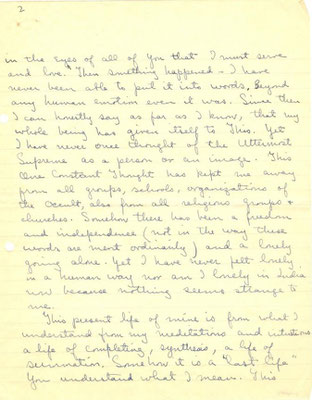 2
in the eyes of all of you that I must serve
and love." Then something happened – I have
never been able to put it into words, Beyond
any human emotion even it was. Since then
I can honestly say as far as I know, that my
whole being has given itself to This. Yet
I have never once thought of the Uttermost
Supreme as a person or an image. This
One Constant Thought has kept me away
from all groups, schools, organizations of
the Occult, also from all religious groups +
churches. Somehow there has been a freedom
and independence (not in the way these
words are ment ordinarily) and a lonely
going alone. Yet I have never felt lonely
in a human way nor am I lonely in India
now because nothing seems strange to
me.
This present life of mine is from what I
understand from my meditations and intuitions
a life of completing, synthesis, a life of
summation. Somehow it is a "last life"
You understand what I mean. This